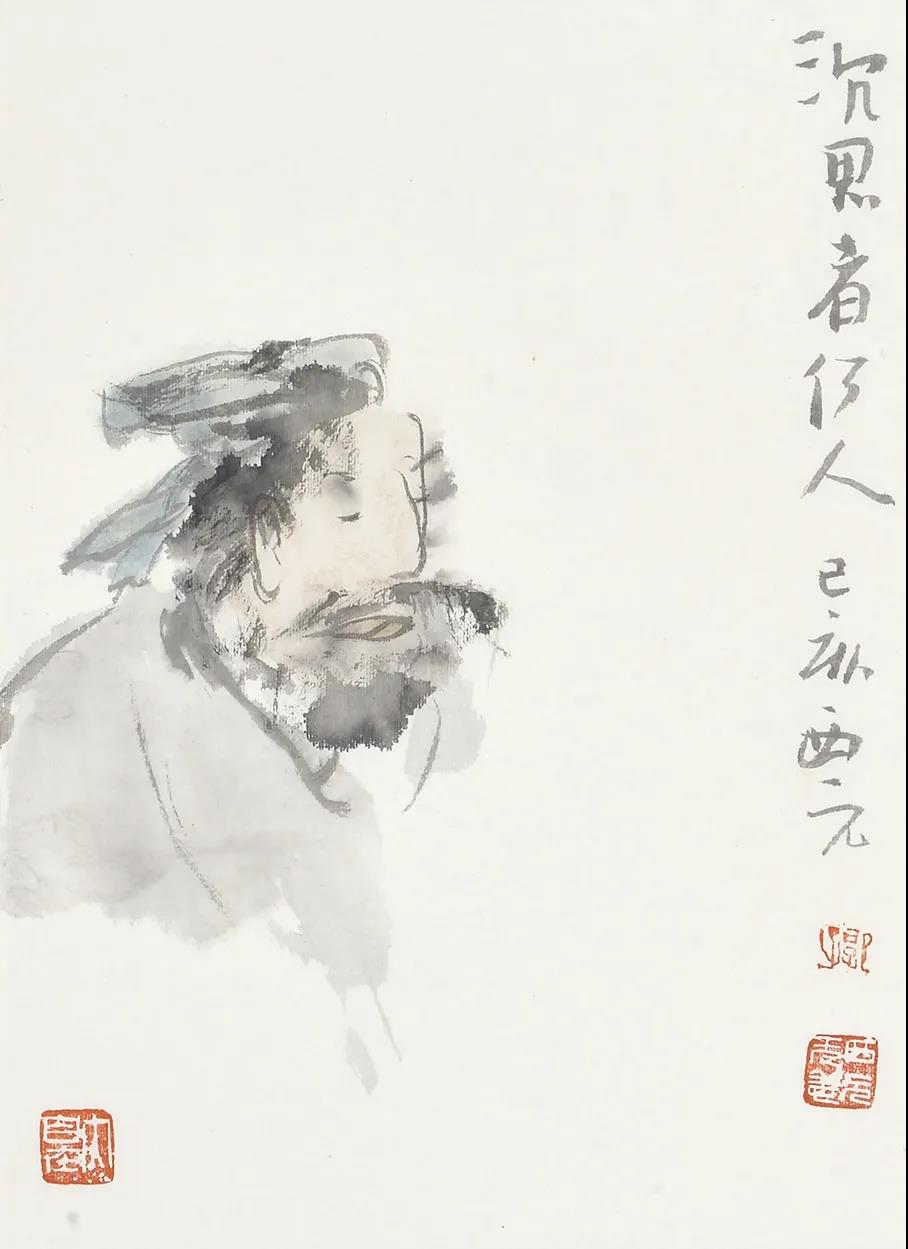 沉思者何人 己亥 西元